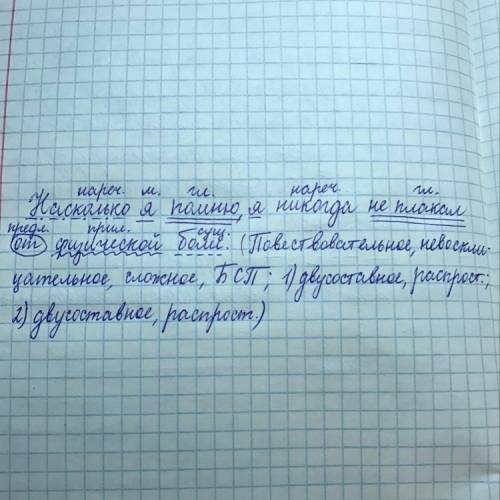 нареч. м. гл. нареч. гл.
Насколько я помню, я никогда не плакал
предл. прил. сущ.
от физической боли. (Повествовательное, невоскли-
цательное, сложное, БСП; 1) двусоставное, распрост.;
2) двусоставное, распрост.)